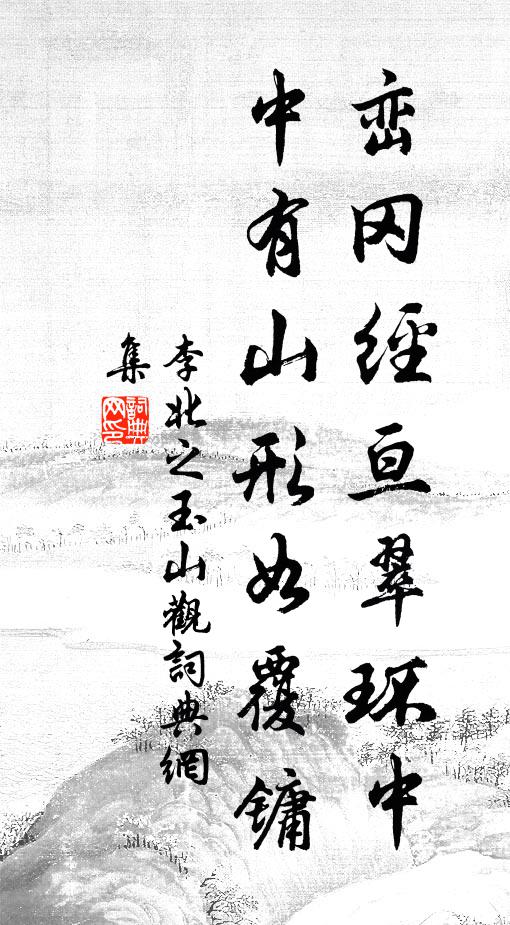 峦冈經亘翠环中
中有山形如覆鏞
李北之玉山觀詞典網
集
詞典网印